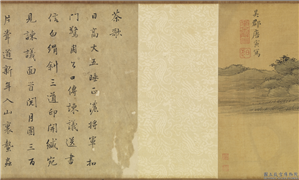 吳郡唐寅寫
茶歌
日高丈五睡正濃將軍扣
門驚周公口傳諫議送書
信白絹斜三道印開緘宛
見諫議面首閱月團三百
片聞道新年入山裏蟄蟲